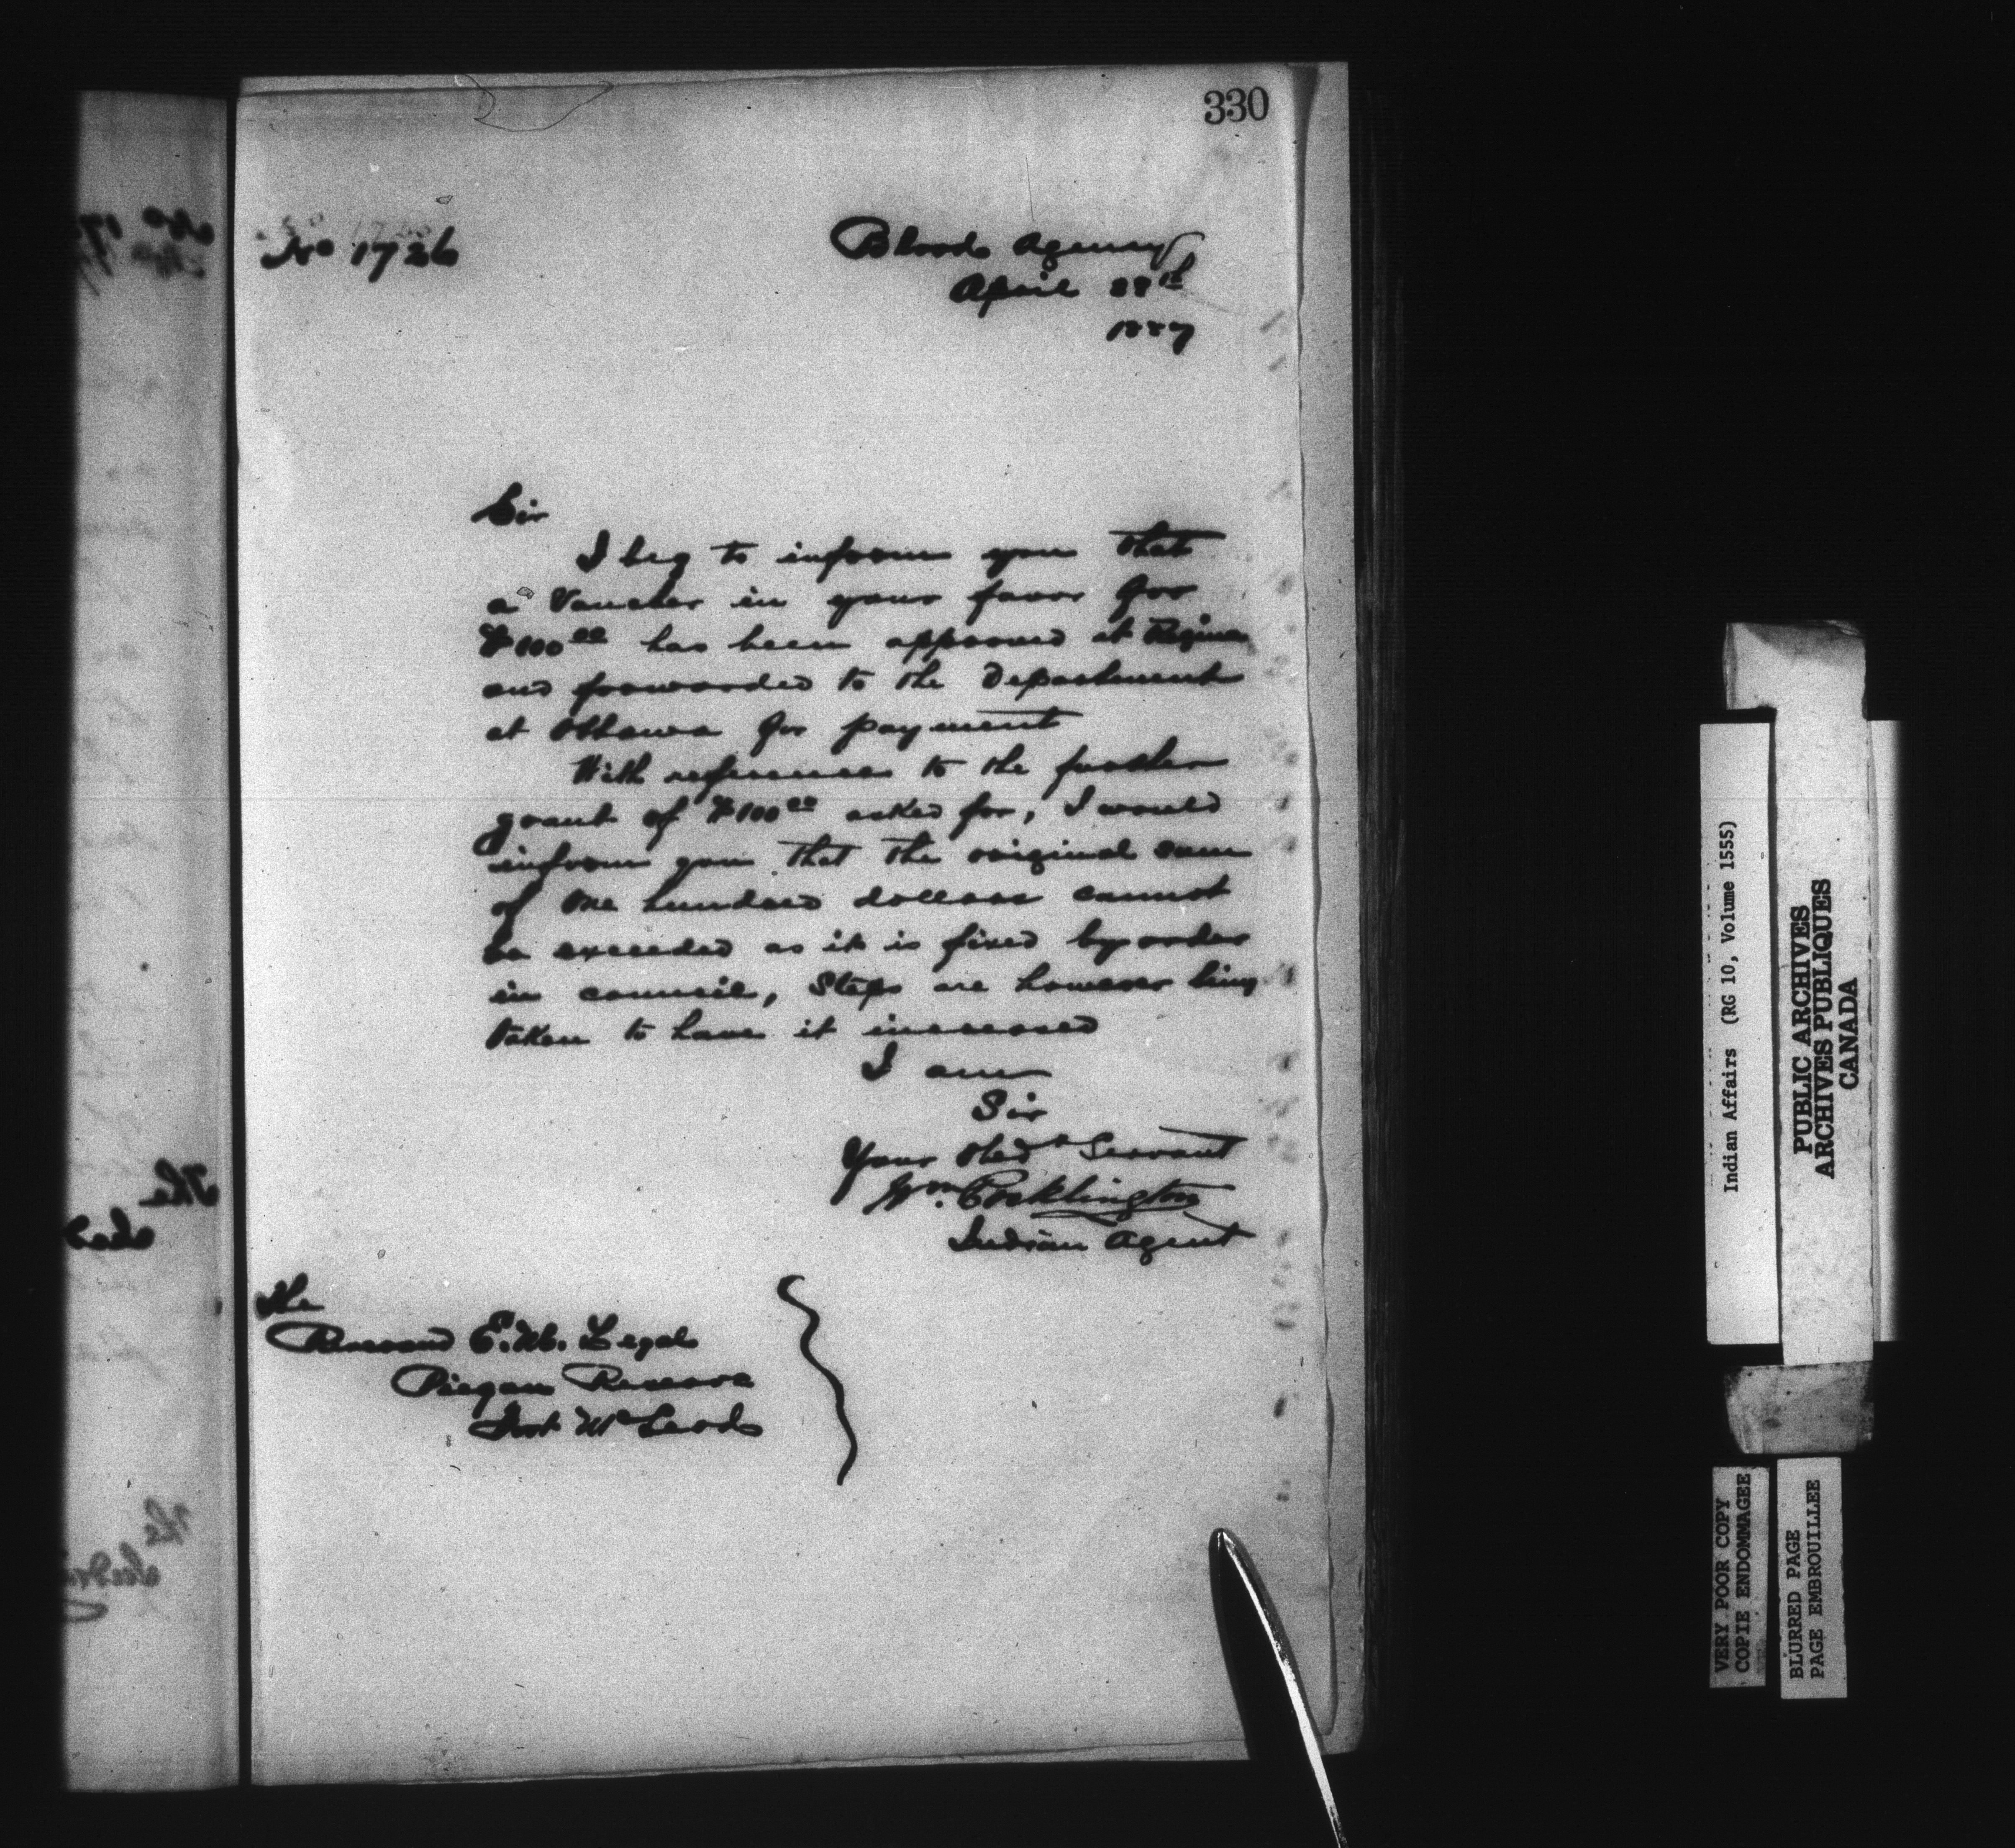 330
No 1726
Blood Agency
April 28th
1887
Sir
I beg to inform you that
a Voucher in your favor for
$100 00 has been approved at Regina
and forwarded to the Department
at Ottawa for payment
With reference to the further
grant of $100 00 asked for, I would
inform you that the original sum
of One hundred dollars cannot
be exceeded as it is fixed by order
in council, Steps are however being
taken to have it increased
I am
Sir
Your Obedt Servant
Wm. Pocklington
Indian Agent
The
Reverend E. M. Legal
Piegan Reserve
Fort McLeod
Indian Affairs (RG 10, Volume 1555)
PUBLIC ARCHIVES
ARCHIVES PUBLIQUES
CANADA
VERY POOR COPY
COPIE ENDOMMAGEE
BLURRED PAGE
PAGE EMBROUILLEE